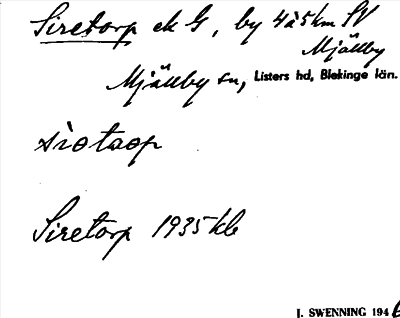 Siretorp ek G, by 4 à 5 km SV
Mjällby
Mjällby sn, Listers hd, Blekinge län.
sìotaop
Siretorp 1935 kb
J. SWENNING 1946